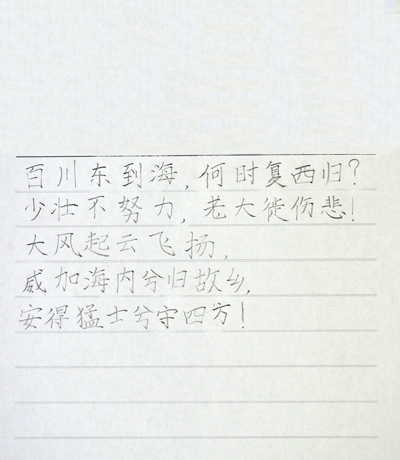 百川东到海,何时复西归?
少壮不努力,老大徒伤悲!
大风起云飞扬,
威加海内兮归故乡,
安得猛士兮守四方!